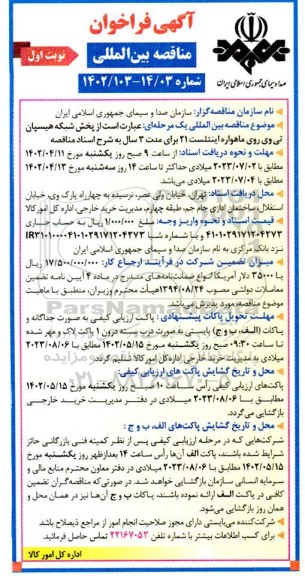 آگهی فراخوان
مناقصه بین‌المللی
نوبت اول
شماره ۱۴/۰۳-۱۴۰۲/۱۰۳
صدا و سیمای جمهوری اسلامی ایران
نام سازمان مناقصه‌گزار: سازمان صدا و سیمای جمهوری اسلامی ایران
موضوع مناقصه بین‌المللی یک مرحله‌ای: عبارت است از پخش شبکه هیسپان
تی وی روی ماهواره اینتلست ۲۱ برای مدت ۳ سال به شرح اسناد مناقصه
مهلت و نحوه دریافت اسناد: از ساعت ۹ صبح روز یکشنبه مورخ ۱۴۰۲/۰۴/۱۱
مطابق با ۲۰۲۳/۰۷/۰۲ میلادی حداکثر تا ساعت ۱۴ روز سه‌شنبه مورخ ۱۴۰۲/۰۴/۱۳
مطابق با ۲۰۲۳/۰۷/۰۴ میلادی می‌باشد.
محل دریافت اسناد: تهران، خیابان ولی عصر، نرسیده به چهارراه پارک وی، خیابان
استقلال، ساختمان اداری جام جم، طبقه چهارم، مدیریت خرید خارجی، اداره کل امور کالا
قیمت اسناد و نحوه واریز وجه: مبلغ ۱/۰۰۰/۰۰۰ ریال به حساب جاری
نزد بانک مرکزی به نام سازمان صدا و سیمای جمهوری اسلامی ایران
میزان تضمین شرکت در فرآیند ارجاع کار: ۱۷/۵۰۰/۰۰۰/۰۰۰ ریال
یا ۳۵۰۰۰ دلار آمریکا انواع ضمانت‌نامه‌های مندرج در ماده ۴ آیین نامه تضمین
معاملات دولتی مصوب ۱۳۹۴/۰۸/۲۴ هیأت محترم وزیران، منطبق با ماهیت
موضوع مناقصه مورد پذیرش می‌باشد.
مهلت تحویل پاکات پیشنهادی: پاکت ارزیابی کیفی به صورت جداگانه و
پاکات (الف، ب و ج) بایستی به صورت درب بسته درون ۱ پاکت لاک و مهر شده
تا ساعت ۰۹:۳۰ صبح روز یکشنبه مورخ ۱۴۰۲/۰۵/۱۵ مطابق با ۲۰۲۳/۰۸/۰۶
میلادی به مدیریت خرید خارجی اداره کل امور کالا تسلیم گردد.
محل و تاریخ گشایش پاکت های ارزیابی کیفی:
پاکت‌های ارزیابی کیفی رأس ساعت ۱۰ صبح روز یکشنبه مورخ ۱۴۰۲/۰۵/۱۵
مطابق با ۲۰۲۳/۰۸/۰۶ میلادی در دفتر مدیریت خرید خارجی
بازگشایی می‌گردد.
محل و تاریخ گشایش پاکت های الف، ب و ج:
شرکت‌هایی که در مرحله ارزیابی کیفی پس از نظر کمیته فنی بازرگانی حائز
شرایط شده باشند، پاکت الف آن‌ها رأس ساعت ۱۴ بعدازظهر روز یکشنبه مورخ
۱۴۰۲/۰۵/۱۵ مطابق با ۲۰۲۳/۰۸/۰۶ میلادی در دفتر معاون محترم منابع مالی و
سرمایه انسانی سازمان بازگشایی خواهد شد. در صورتی‌که مناقصه‌گران تضمین
کافی در پاکت الف ارائه نموده باشند، پاکات ب و ج آن‌ها نیز در همان محل و
همان روز بازگشایی می‌شود.
شرکت‌کننده می‌بایستی دارای مجوز صلاحیت انجام امور از مراجع ذیصلاح باشد
برای کسب اطلاعات بیشتر با شماره تلفن ۲۲۱۶۷۰۵۳ تماس حاصل فرمائید.
اداره کل امور کالا